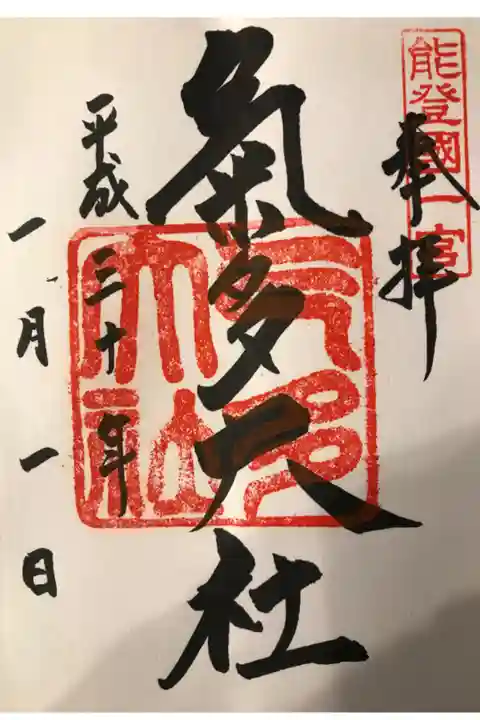 能登國一宮
奉拝
氣多大社
气多大社
平成三十年
一月一日